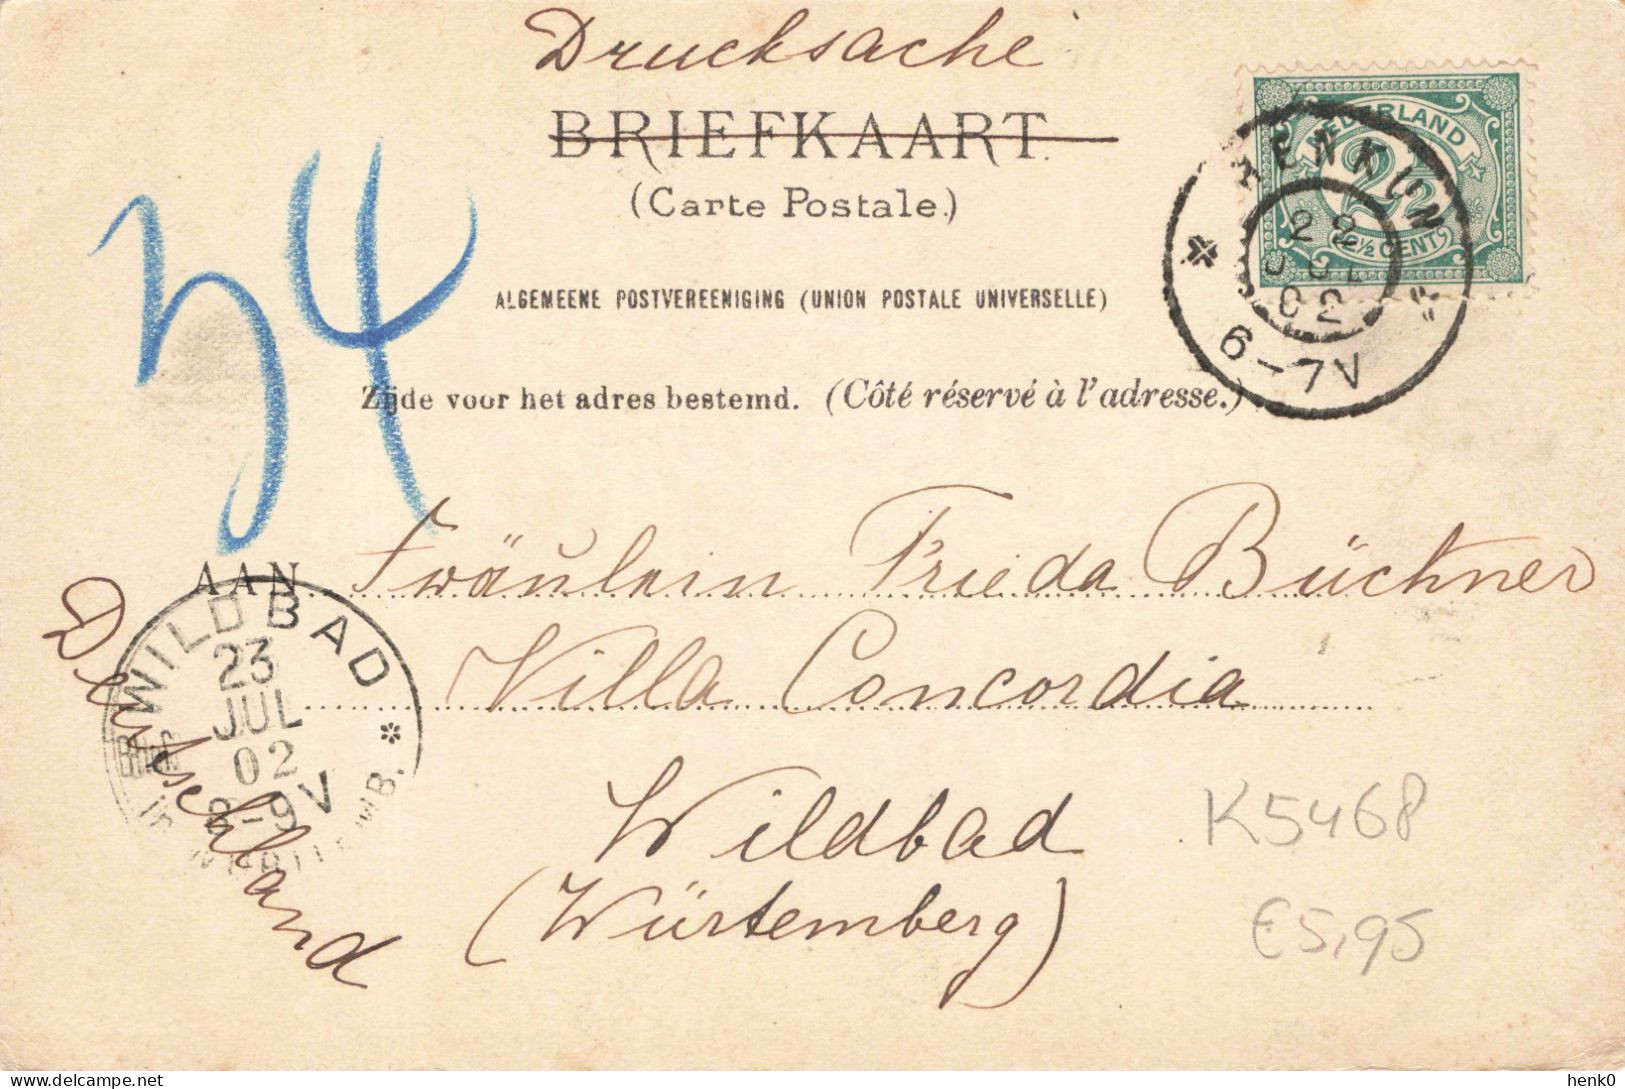 Drucksache
BRIEFKAART
(Carte Postale.)
NEDERLAND
2½
2½ CENT
RENKUM
22
JUL
02
6-7V
34
ALGEMEENE POSTVEREENIGING (UNION POSTALE UNIVERSELLE)
Zijde voor het adres bestemd. (Côté réservé à l'adresse.)
AAN
Fräulein Frieda Büchner
Villa Concordia
Wildbad
(Würtemberg)
Deutschland
WILDBAD
23
JUL
02
8-9V
K5468
€5,95
henk0